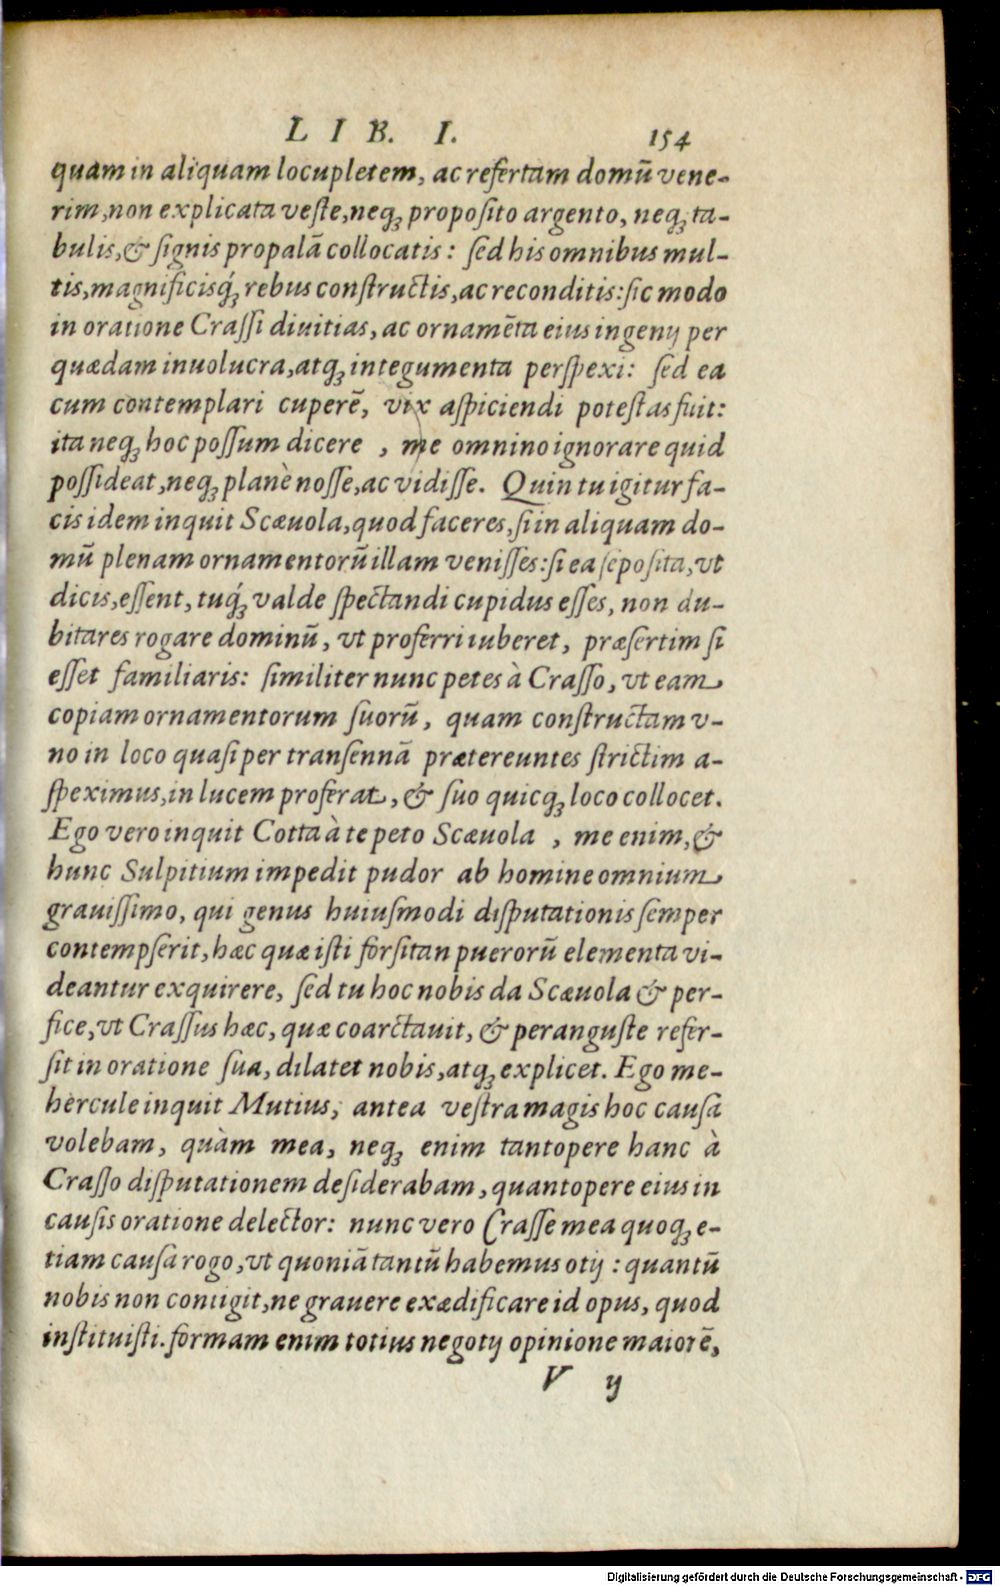 L I B. I. 154
quam in aliquam locupletem, ac refertam domũ vene-
rim, non explicata veste, neq; proposito argento, neq; ta-
bulis, & signis propalã collocatis: sed his omnibus mul-
tis, magnificisq́; rebus constructis, ac reconditis: sic modo
in oratione Crassi diuitias, ac ornamẽta eius ingenij per
quædam inuolucra, atq; integumenta perspexi: sed ea
cum contemplari cuperẽ, vix aspiciendi potestas fuit:
ita neq; hoc possum dicere , me omnino ignorare quid
possideat, neq; planè nosse, ac vidisse. Quin tu igitur fa-
cis idem inquit Scæuola, quod faceres, si in aliquam do-
mũ plenam ornamentorũ illam venisses: si ea seposita, vt
dicis, essent, tuq́; valde spectandi cupidus esses, non du-
bitares rogare dominũ, vt proferri iuberet, præsertim si
esset familiaris: similiter nunc petes à Crasso, vt eam
copiam ornamentorum suorũ, quam constructam v-
no in loco quasi per transennã prætereuntes strictim a-
speximus, in lucem proferat, & suo quicq; loco collocet.
Ego vero inquit Cotta à te peto Scæuola , me enim, &
hunc Sulpitium impedit pudor ab homine omnium
grauissimo, qui genus huiusmodi disputationis semper
contempserit, hæc quæ isti forsitan puerorũ elementa vi-
deantur exquirere, sed tu hoc nobis da Scæuola & per-
fice, vt Crassus hæc, quæ coarctauit, & peranguste refer-
sit in oratione sua, dilatet nobis, atq; explicet. Ego me-
hercule inquit Mutius, antea vestra magis hoc causa
volebam, quàm mea, neq; enim tantopere hanc à
Crasso disputationem desiderabam, quantopere eius in
causis oratione delector: nunc vero Crasse mea quoq; e-
tiam causa rogo, vt quoniã tantũ habemus otij : quantũ
nobis non contigit, ne grauere exædificare id opus, quod
instituisti. formam enim totius negotij opinione maiorẽ,
V ij
Digitalisierung gefördert durch die Deutsche Forschungsgemeinschaft - DFG